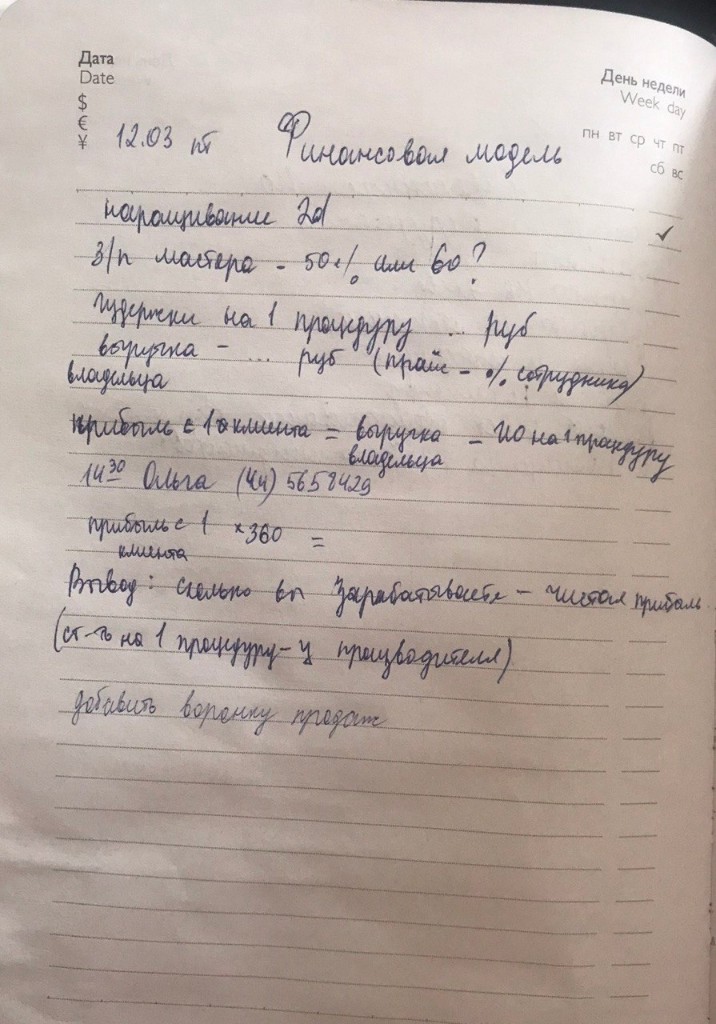 Дата
Date
$
€
¥
День недели
Week day
пн вт ср чт пт
сб вс
12.03 пт Финансовая модель
наращивание 2d
✓
З/п мастера - 50% или 60?
Издержки на 1 процедуру ... руб
выручка - ... руб (прайс - % сотрудника)
владельца
прибыль с 1 клиента = выручка - ИО на 1 процедуру
владельца
14 30 Ольга (44) 5658429
прибыль с 1 × 360 =
клиента
Вывод: сколько вы зарабатываете - чистая прибыль
(ст-ть на 1 процедуру - у производителя)
добавить воронку продаж